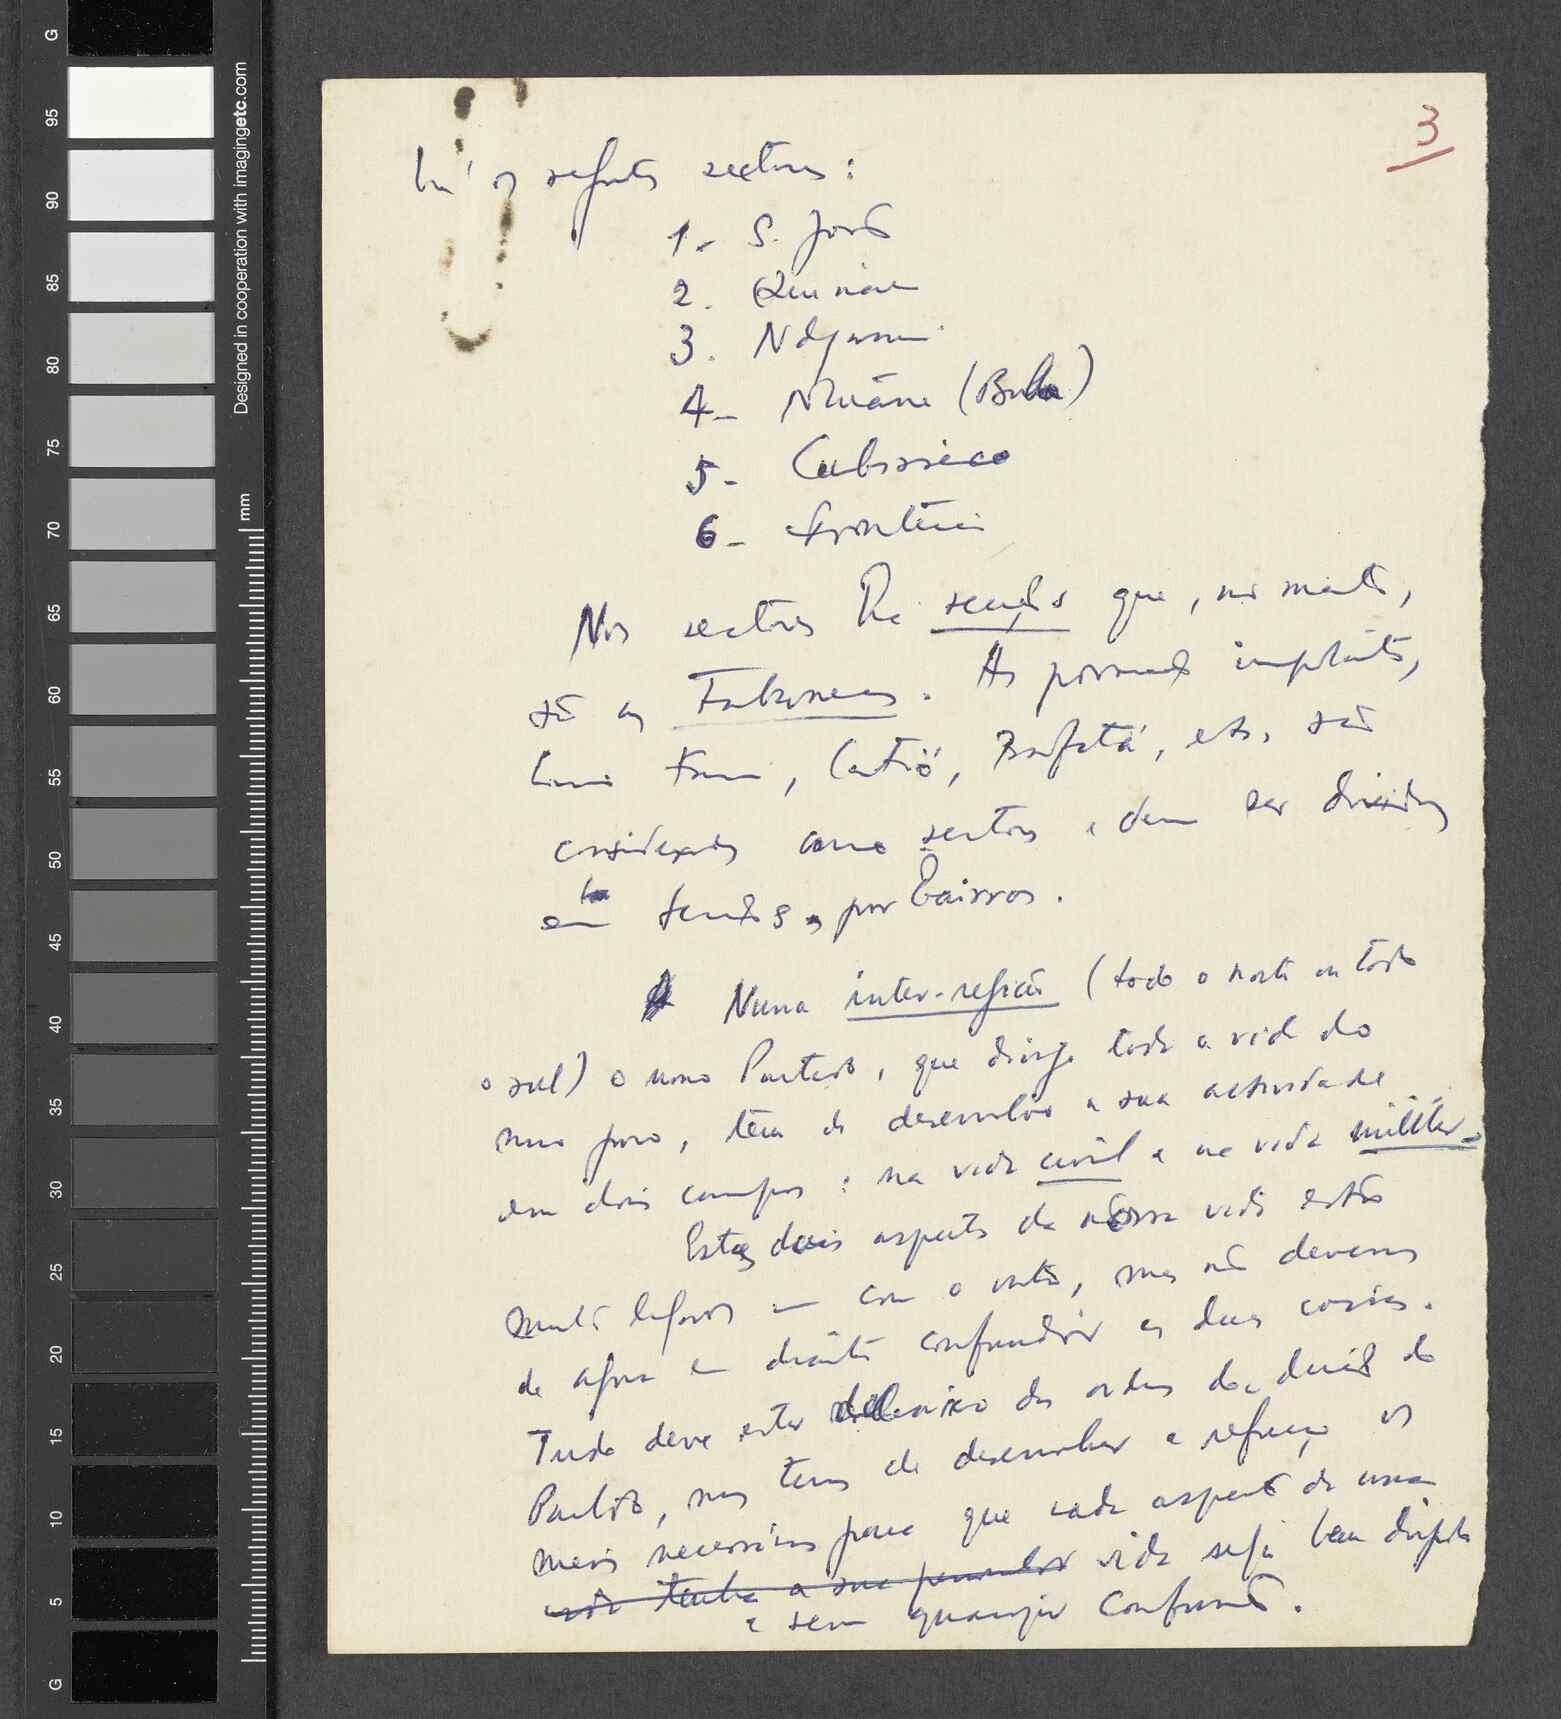 3
há os seguintes sectores:
1- S. José
2. Quinara
3. Ndjassani
4- Nhacra (Bula)
5- Cubisseco
6- fronteira
Nos sectores há secções que, no mato,
são as Tabancas. As povoações importantes,
como Farim, Catió, Bafatá, etc, são
consideradas como sectores e devem ser divididas
em secções, por bairros.
Numa inter-região (todo o norte ou todo
o sul) o nosso Partido, que dirige toda a vida do
nosso povo, tem de desenvolver a sua actividade
em dois campos: na vida civil e na vida militar.
Estes dois aspectos da nossa vida estão
muito ligados um com o outro, mas não devemos
de agora em diante confundir as duas coisas.
Tudo deve estar debaixo das ordens da direcção do
Partido, mas temos de desenvolver e reforçar os
meios necessários para que cada aspecto da nossa
vida tenha a sua vida seja bem dirigida
e sem qualquer confusão.
G
95
90
85
80
75
70
65
60
55
50
45
40
35
30
25
20
15
10
5
G
Designed in cooperation with imagingetc.com
mm